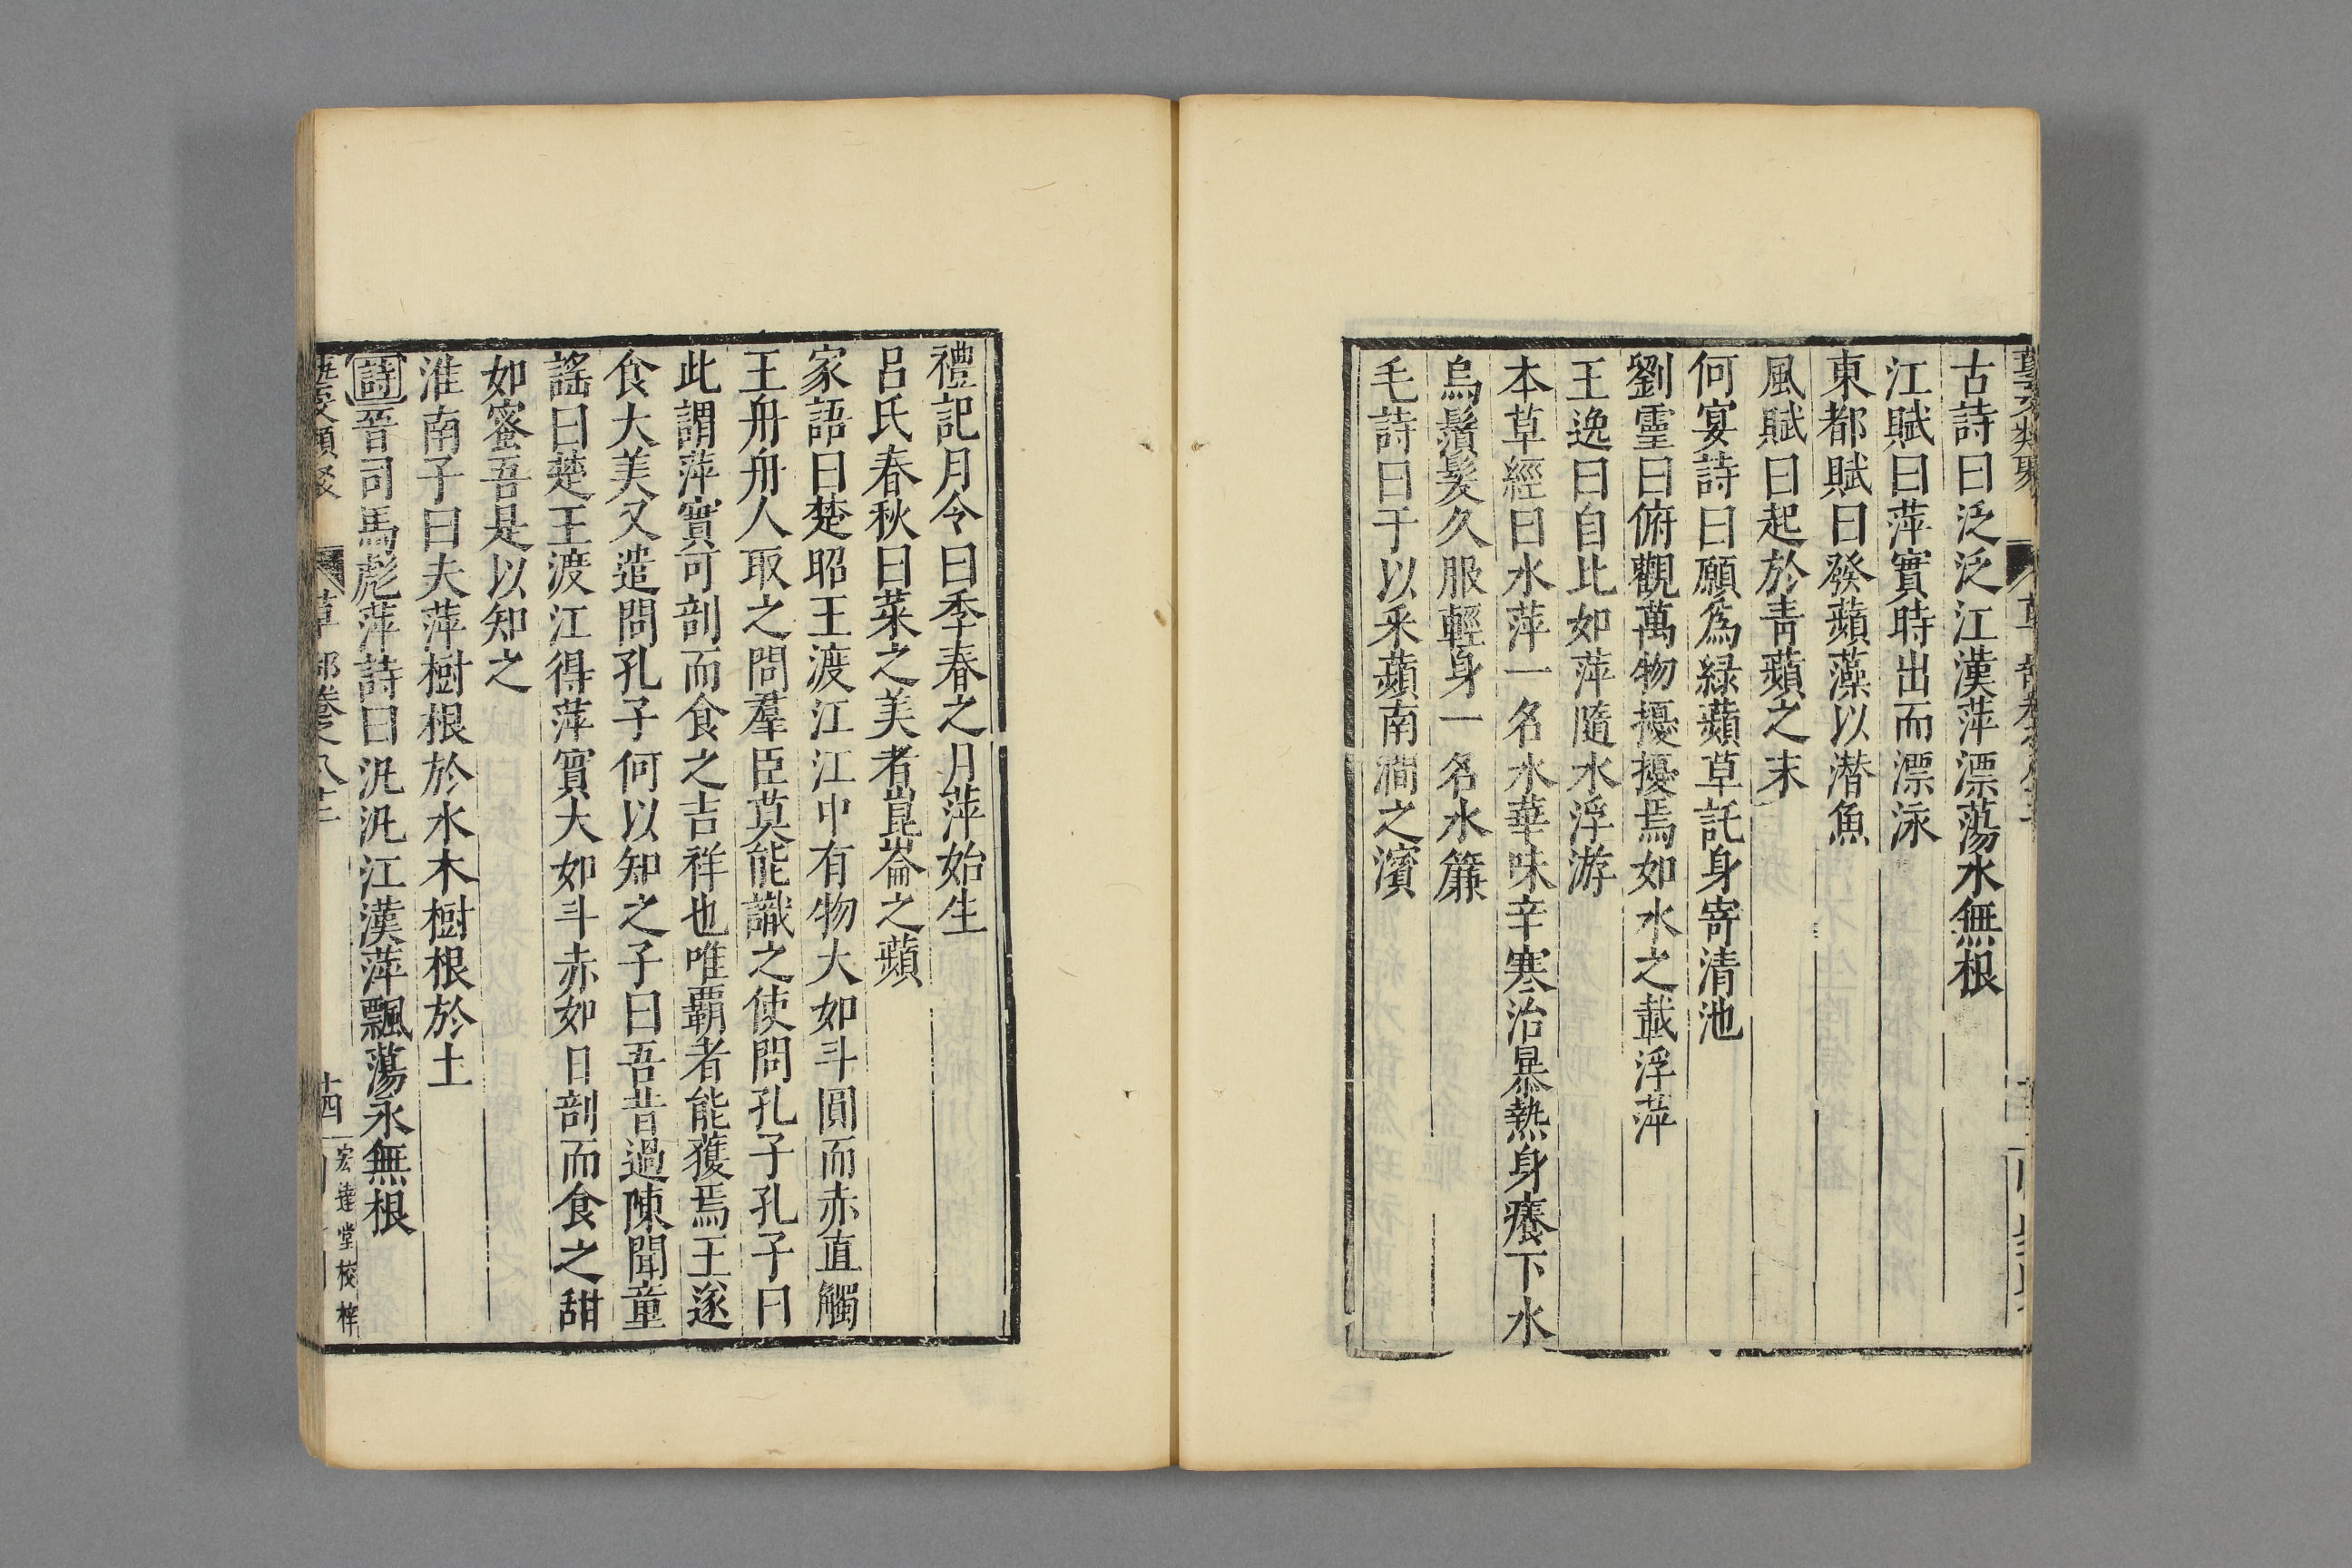 古詩曰泛泛江漢萍漂蕩水無根
江賦曰萍實時出而漂泳
東都賦曰發蘋藻以潜魚
風賦曰起於靑蘋之末
何宴詩曰願爲緑蘋草託身寄清池
劉靈曰俯觀萬物擾擾焉如水之載浮萍
王逸曰自比如萍隨水浮游
本草經曰水萍一名水華味辛寒治暴熱身癢下水
烏鬚髮久服輕身一名水簾
毛詩曰于以采蘋南澗之濱
禮記月令曰季春之月萍始生
呂氏春秋曰菜之美者崑崙之蘋
家語曰楚昭王渡江江中有物大如斗圓而赤直觸
王舟舟人取之問羣臣莫能識之使問孔子孔子曰
此謂萍實可剖而食之吉祥也唯覇者能獲焉王遂
食大美又遣問孔子何以知之子曰吾昔過陳聞童
謡曰楚王渡江得萍實大如斗赤如日剖而食之甜
如蜜吾是以知之
淮南子曰夫萍樹根於水木樹根於土
詩晉司馬彪萍詩曰汎汎江漢萍飄蕩永無根
草部卷之八十二 十四 宏達堂校梓